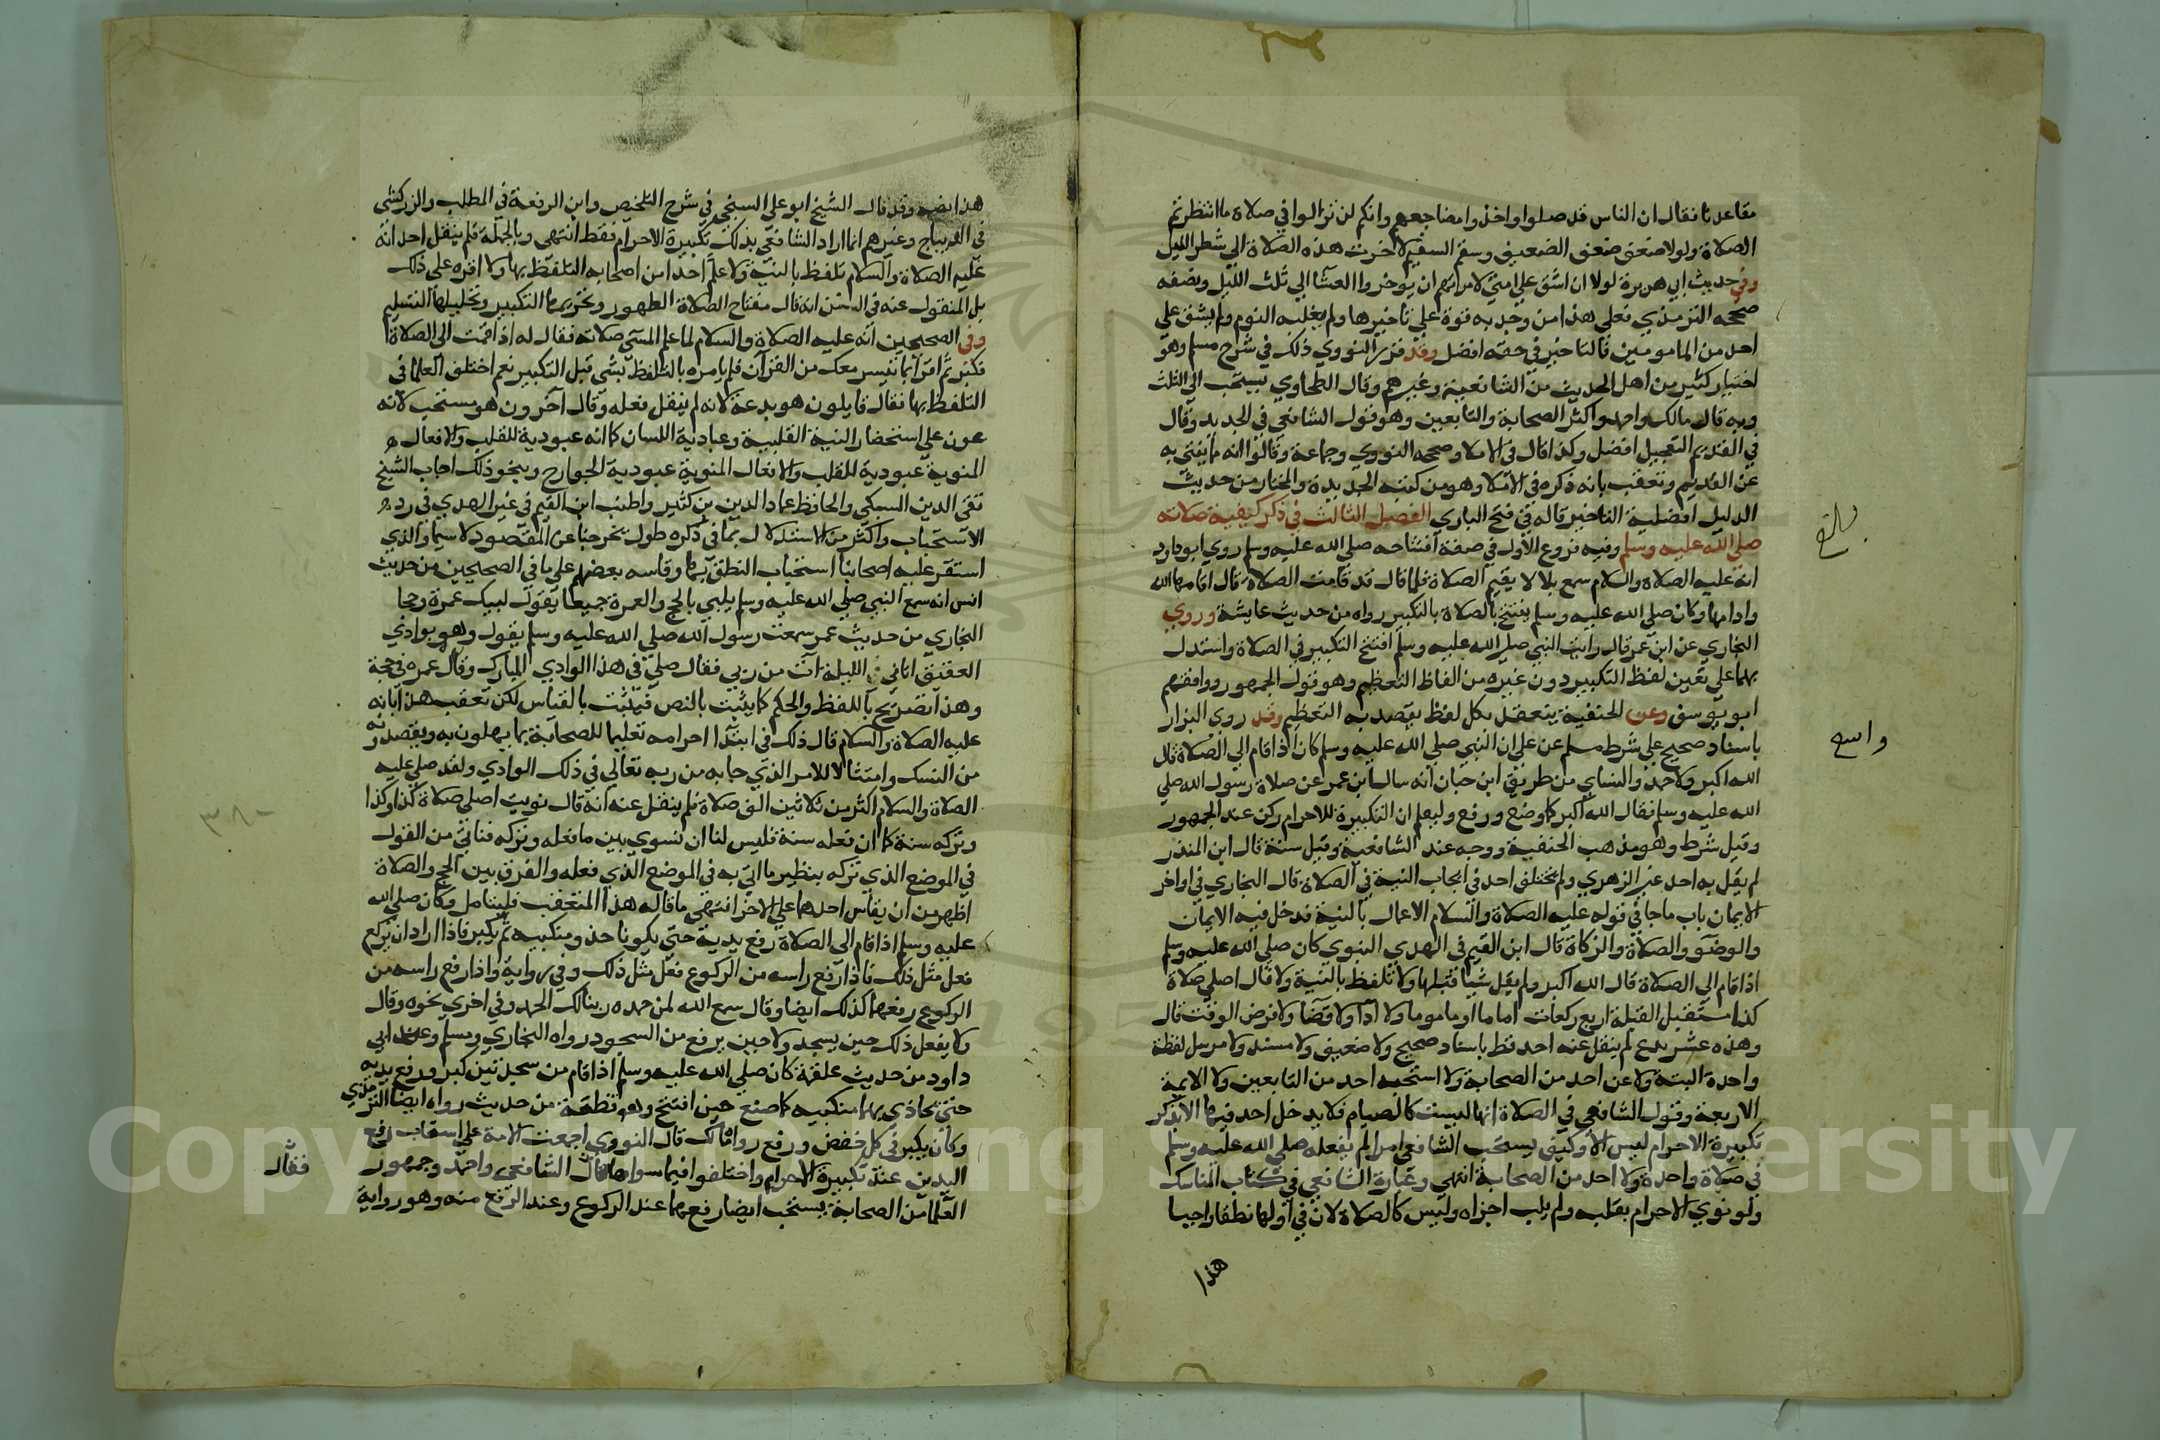 مقاعدنا فقال ان الناس قد صلوا واخذوا مضاجعهم وانكم لن تزالوا في صلاة ما انتظرتم
الصلاة ولولا ضعف الضعيف وسقم السقيم لاخرت هذه الصلاة الي شطر الليل
وفي حديث ابي هريرة لولا ان اشق علي امتي لامرتهم ان يوخروا العشا الي ثلث الليل ونصفه
صححه الترمذي فعلي هذا من وجد به قوة علي تاخيرها ولم يغلبه النوم ولم يشق علي
احد من المامومين فالتاخير في حقه افضل وقد قرر النووي ذلك في شرح مسلم وهو
اختيار كثير من اهل الحديث من الشافعية وغيرهم وقال الطحاوي يستحب الي الثلث
وبه قال مالك واحمد واكثر الصحابة والتابعين وهو قول الشافعي في الجديد وقال
في القديم التعجيل افضل وكذا قال في الاملا وصححه النووي وجماعة وقالوا انه مما يفتي به
عن القديم وتعقب بانه ذكره في الاملا وهو من كتبه الجديدة والمختار من حديث
الدليل افضلية التاخير قاله في فتح الباري الفصل الثالث في ذكر كيفية صلاته
صلي الله عليه وسلم وفيه فروع الاول في صفة افتتاحه صلي الله عليه وسلم روي ابو داود
انه عليه الصلاة والسلام سمع بلالا يقيم الصلاة فلما قال قد قامت الصلاة قال اقامها الله
وادامها وكان صلي الله عليه وسلم يفتتح الصلاة بالتكبير رواه من حديث عايشة وروي
البخاري عن ابن عمر قال رايت النبي صلي الله عليه وسلم افتتح التكبير في الصلاة واستدل
بهما علي تعين لفظ التكبير دون غيره من الفاظ التعظيم وهو قول الجمهور ووافقهم
ابو يوسف وعن الحنفية ينعقد بكل لفظ يقصد به التعظيم وقد روي البزار
باسناد صحيح علي شرط مسلم عن علي ان النبي صلي الله عليه وسلم كان اذا قام الي الصلاة قال
الله اكبر ولاحمد والنساي من طريق ابن حبان انه سال ابن عمر عن صلاة رسول الله صلي
الله عليه وسلم فقال الله اكبر كلما وضع ورفع وليعلم ان التكبيرة للاحرام ركن عند الجمهور
وقيل شرط وهو مذهب الحنفية ووجه عند الشافعية وقيل سنة قال ابن المنذر
لم يقل به احد غير الزهري ولم يختلف احد في ايجاب النية في الصلاة قال البخاري في اواخر
الايمان باب ما جا في قوله عليه الصلاة والسلام الاعمال بالنية فدخل فيه الايمان
والوضو والصلاة والزكاة قال ابن القيم في الهدي النبوي كان صلي الله عليه وسلم
اذا قام الي الصلاة قال الله اكبر ولم يقل شيا قبلها ولا تلفظ بالنية ولا قال اصلي صلاة
كذا مستقبل القبلة اربع ركعات اماما او ماموما ولا ادا ولا قضا ولا فرض الوقت قال
وهذه عشر بدع لم ينقل عنه احد قط باسناد صحيح ولا ضعيف ولا مسند ولا مرسل لفظة
واحدة البتة ولا عن احد من الصحابة ولا استحبه احد من التابعين ولا الايمة
الاربعة وقول الشافعي في الصلاة انها ليست كالصيام فلا يدخل احد فيها الا بذكر
تكبيرة الاحرام ليس الا وكيف يستحب الشافعي امرا لم يفعله صلي الله عليه وسلم
في صلاة واحدة ولا احد من الصحابة انتهي وعبارة الشافعي في كتاب المناسك
ولو نوي الاحرام بقلبه ولم يلب اجزاه وليس كالصلاة لان في اولها نطقا واجبا
هذا
بلغ
واسع
هذا نصه وقد قال الشيخ ابو علي السنجي في شرح التلخيص وابن الرفعة في المطلب والزركشي
في الديباج وغيرهم انما اراد الشافعي بذلك تكبيرة الاحرام فقط انتهي وبالجملة فلم ينقل احد انه
عليه الصلاة والسلام تلفظ بالنية ولا علم احدا من اصحابه التلفظ بها ولا اقره علي ذلك
بل المنقول عنه في السنن انه قال مفتاح الصلاة الطهور وتحريمها التكبير وتحليلها التسليم
وفي الصحيحين انه عليه الصلاة والسلام لما علم المسي صلاته فقال له اذا قمت الي الصلاة
فكبر ثم اقرا بما تيسر معك من القران فلم يامره بالتلفظ بشي قبل التكبير نعم اختلف العلما في
التلفظ بها فقال قايلون هو بدعة لانه لم ينقل فعله وقال اخرون هو مستحب لانه
عون علي استحضار النية القلبية وعبادية اللسان كما انه عبودية للقلب والافعال
المنوية عبودية للقلب والافعال المنوية عبودية الجوارح وبنحو ذلك اجاب الشيخ
تقي الدين السبكي والحافظ عماد الدين بن كثير واطنب ابن القيم في غير الهدي في رد
الاستحباب واكثر من الاستدلال بما في ذكره طول يخرجنا عن المقصود لا سيما والذي
استقر عليه اصحابنا استحباب النطق بها وقاسه بعضهم علي ما في الصحيحين من حديث
انس انه سمع النبي صلي الله عليه وسلم يلبي بالحج والعمرة جميعا يقول لبيك عمرة وحجا
البخاري من حديث عمر سمعت رسول الله صلي الله عليه وسلم يقول وهو بوادي
العقيق اتاني الليلة ات من ربي فقال صلي في هذا الوادي المبارك وقال عمره في حجة
وهذا تصريح باللفظ والحكم كما يثبت بالنص فيثبت بالقياس لكن تعقب هذا بانه
عليه الصلاة والسلام قال ذلك في ابتدا احرامه تعليما للصحابة بما يهلون به ويقصدونه
من النسك وامتثالا للامر الذي جابه من ربه تعالي في ذلك الوادي ولقد صلي عليه
الصلاة والسلام اكثر من ثلاثين الف صلاة فلم ينقل عنه انه قال نويت اصلي صلاة كذا وكذا
وتركه سنة كما ان فعله سنة فليس لنا ان نسوي بين ما فعله وتركه فناتي من القول
في الموضع الذي تركه بنظير ما اتي به في الموضع الذي فعله والفرق بين الحج والصلاة
اظهر من ان يقاس احدهما علي الاخر انتهي ما قاله هذا المتعقب فليتامل وكان صلي الله
عليه وسلم اذا قام الي الصلاة رفع يديه حتي يكونا حذو منكبيه ثم يكبر فاذا اراد ان يركع
فعل مثل ذلك فاذا رفع راسه من الركوع فعل مثل ذلك وفي رواية واذا رفع راسه من
الركوع رفعهما كذلك ايضا وقال سمع الله لمن حمده ربنا لك الحمد وفي اخري نحوه وقال
ولا يفعل ذلك حين يسجد ولا حين يرفع من السجود رواه البخاري ومسلم وعند ابي
داود من حديث علقمة كان صلي الله عليه وسلم اذا قام من سجدتين كبر ورفع يديه
حتي يحاذي بهما منكبيه كما صنع حين افتتح وهو قطعة من حديث رواه ايضا الترمذي
وكان يكبر في كل خفض ورفع رواه مالك قال النووي اجمعت الامة علي استحباب رفع
اليدين عند تكبيرة الاحرام واختلفوا فيما سواها فقال الشافعي واحمد وجمهور
العلما من الصحابة يستحب ايضا رفعهما عند الركوع وعند الرفع منه وهو رواية
فقال
٣٨٠
Copyright © King Saud University